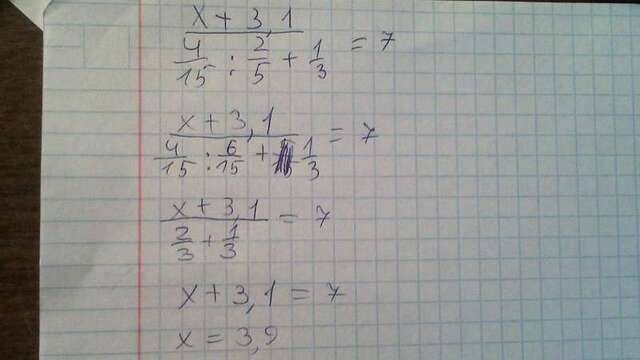 x + 3,1 / (4/15 : 2/5 + 1/3) = 7
x + 3,1 / (4/15 : 6/15 + 1/3) = 7
x + 3,1 / (2/3 + 1/3) = 7
x + 3,1 = 7
x = 3,9